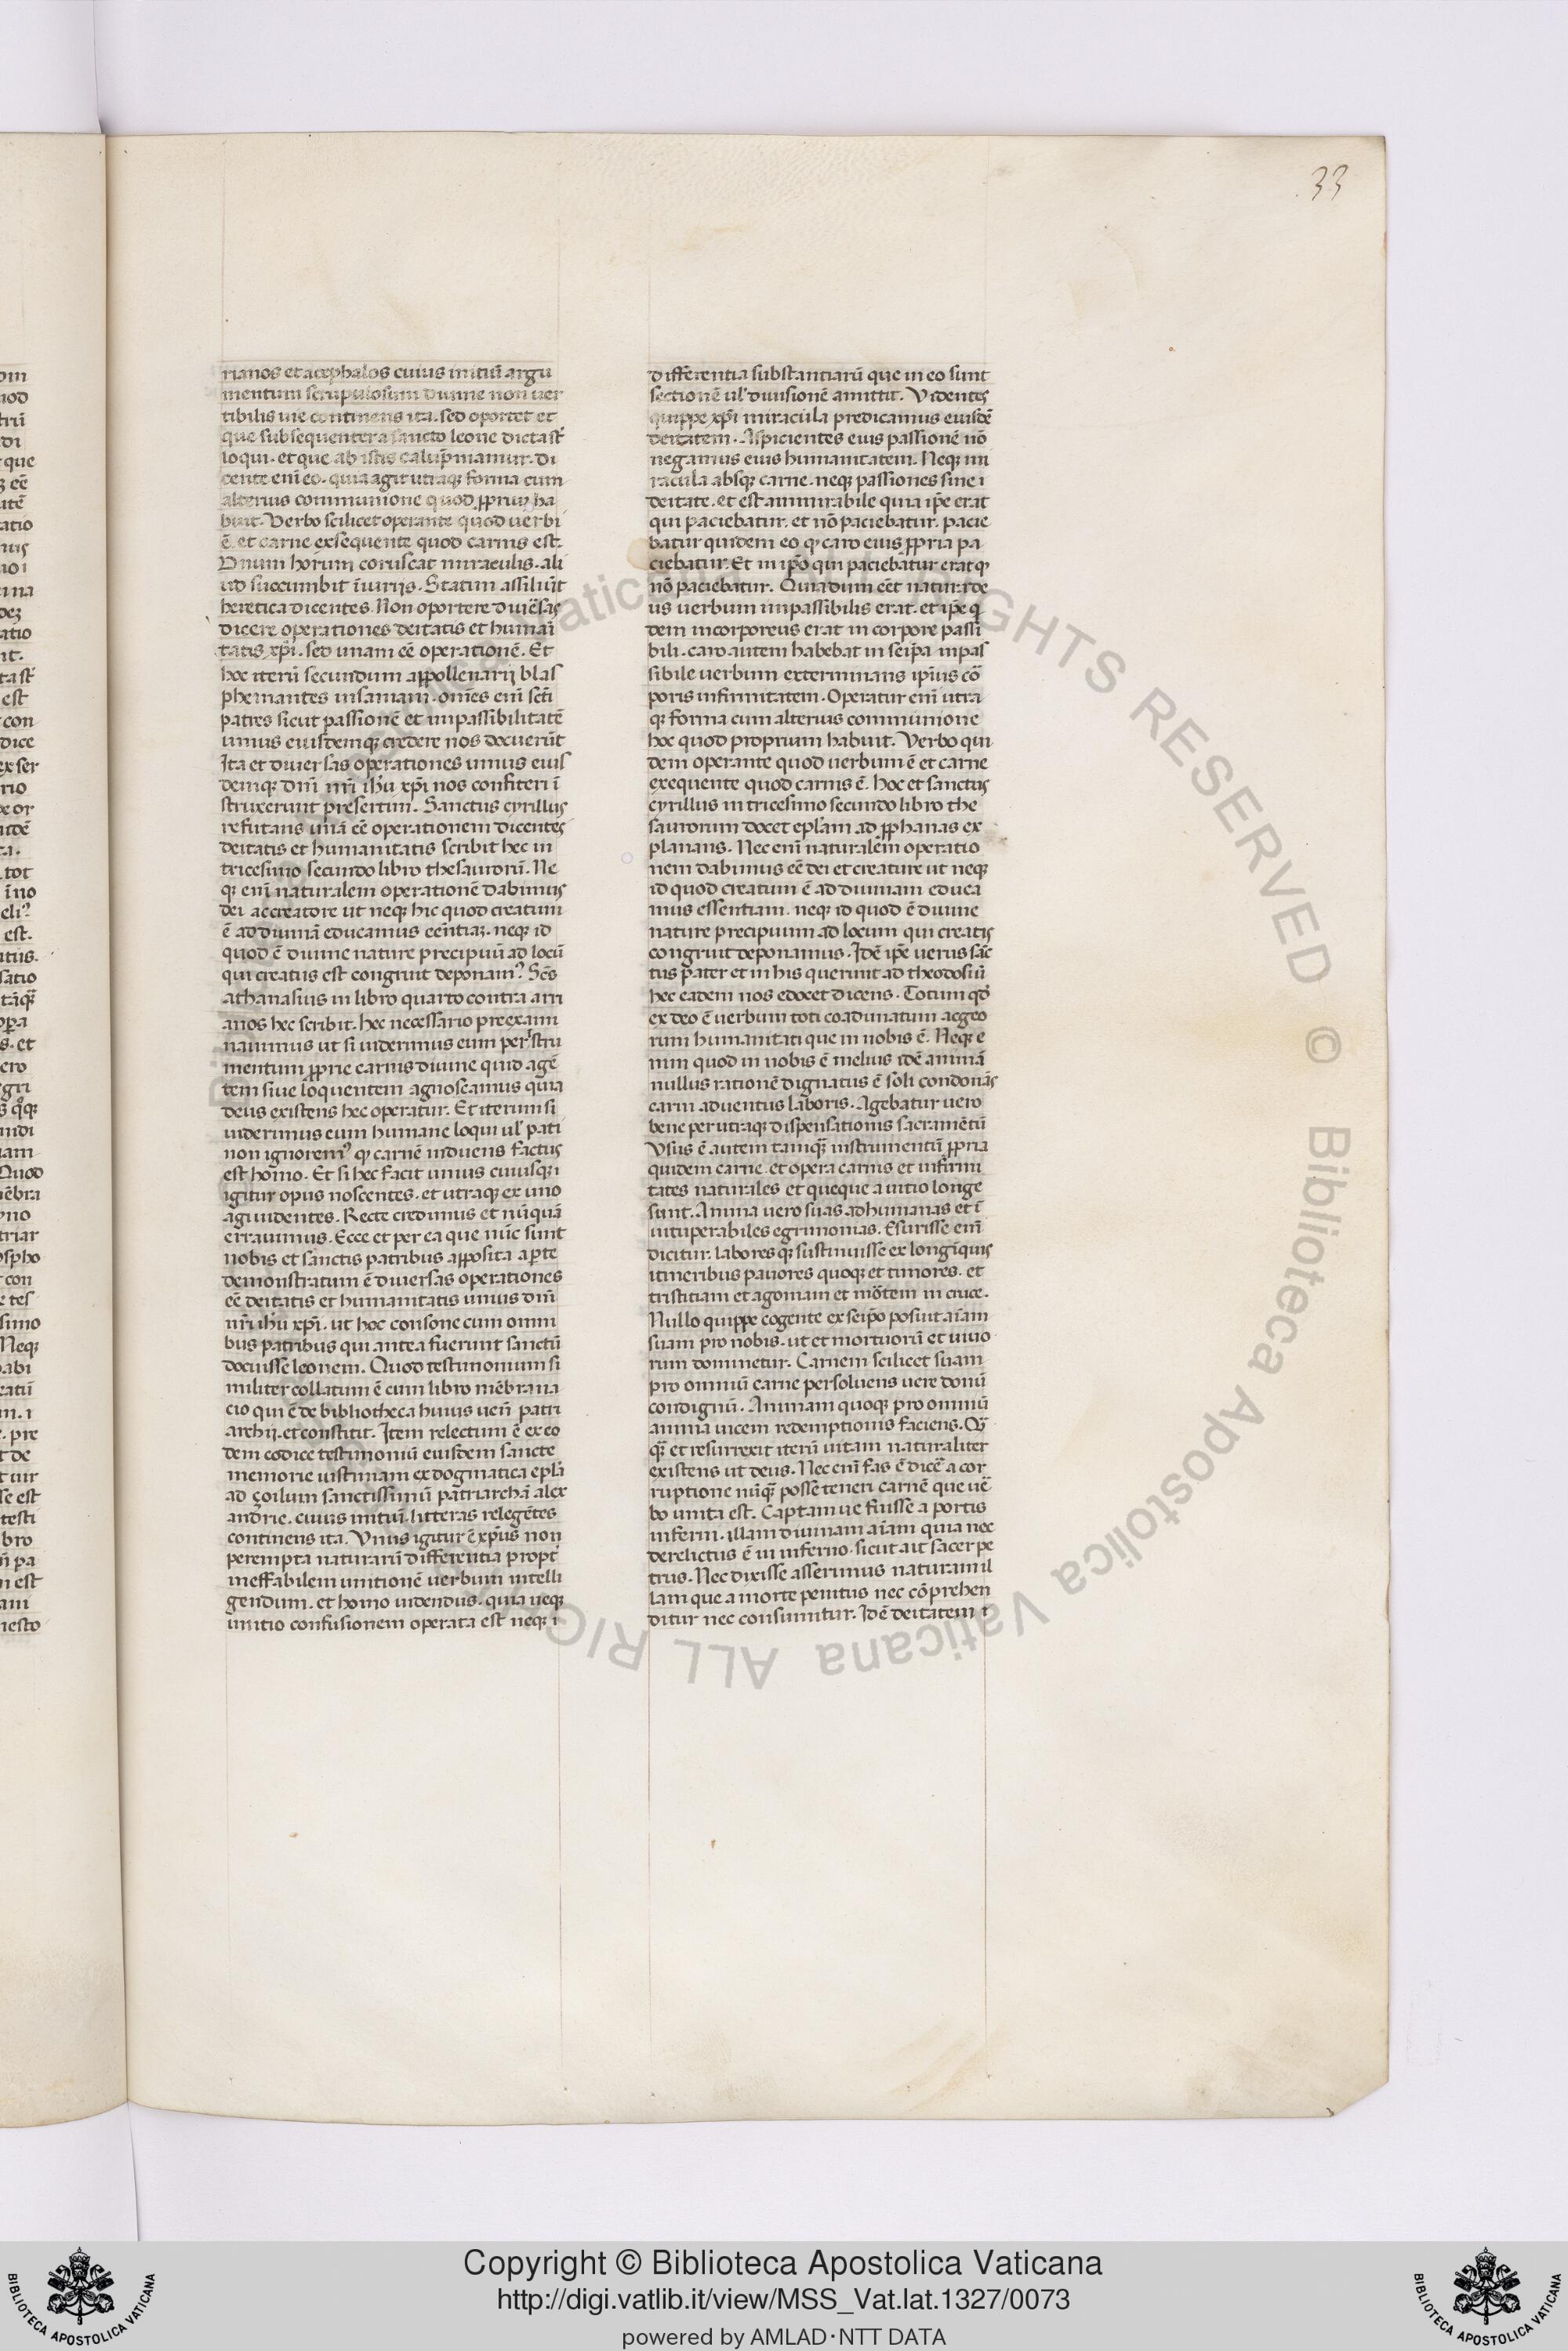 33
rianos et acephalos cuius initiū argu
mentum scrupulosum diuine non uer
tibilis uie continens ita. sed oportet et
que subsequenter a sancto leone dicta st̄
loqui. et que ab istis calūpniamur. di
cente eni eo. quia agit utraq; forma cum
alterius communione quod ꝓprium ha
buit. Verbo scilicet operante quod uerbi
ē. et carne exsequente quod carnis est.
Vnum horum coruscat miraculis. ali
ud succumbit īiurijs. Statim assiliūt
heretica dicentes. Non oportere diuēsas
dicere operationes deitatis et humai
tatis xp̄i. sed unam eē operationē. Et
hoc iterū secundum appollenarij blas
phemantes insaniam. om̄es enī sc̄ti
patres sicut passionē et impassibilitatē
unius eiusdemq; credere nos docuerūt
Ita et diuersas operationes unius eius
demq; dnī nr̄i ih̄u xp̄i nos confiteri ī
struxerunt presertim. Sanctus cyrillus
refutans unā eē operationem dicentes
deitatis et humanitatis scribit hec in
tricesimo secundo libro thesaurorū. Ne
q; enī naturalem operationē dabimus
dei ac creatore ut neq; hic quod creatum
ē ad diuinā educamus eēntiaz. neq; id
quod ē diuine nature precipuū ad locū
qui creatus est congruit deponam⁹. Sc̄s
athanasius in libro quarto contra arri
anos hec scribit. hec necessario preexami
nauimus ut si uiderimus eum per istru
mentum ꝓprie carnis diuine quid agē
tem siue loquentem agnoscamus quia
deus existens hec operatur. Et iterum si
uiderimus eum humane loqui ul' pati
non ignorem⁹ ꝙ carnē induens factus
est homo. Et si hec facit unius cuiusq; i
igitur opus noscentes. et utraq; ex uno
agi uidentes. Recte credimus et nūquā
errauimus. Ecce et per ea que nūc sunt
nobis et sanctis patribus apposita aperte
demonstratum ē diuersas operationes
eē deitatis et humanitatis unius dnī
nr̄i ih̄u xp̄i. ut hoc consone cum omni
bus patribus qui antea fuerunt sanctū
docuisse leonem. Quod testimonium si
militer collatum ē cum libro mēbrana
cio qui ē de bibliotheca huius uen̄ patri
archij. et constitit. Item relectum ē ex eo
dem codice testimoniū eiusdem sancte
memorie iustiniani ex dogmatica epl̄a
ad çoilum sanctissimū patriarchā alex
andrie. cuius initiū. litteras relegētes
continens ita. Vnus igitur ē xp̄us non
perempta naturarū differentia propt̄
ineffabilem unitionē uerbum intelli
gendum. et homo uidendus. quia neq;
unitio confusionem operata est neq; i
differentia substantiarū que in eo sunt
sectionē ul' diuisionē amittit. Videntes
quippe xp̄i miracula predicamus eiusdē
deitatem. Aspicientes eius passionē nō
negamus eius humanitatem. Neq; mi
racula absq; carne. neq; passiones sine i
deitate. et est ammirabile quia ip̄e erat
qui paciebatur. et nō paciebatur. pacie
batur quidem eo ꝙ caro eius ꝓpria pa
ciebatur. Et in ip̄o qui paciebatur erat ꝙ
nō paciebatur. Quia dum eēt natura de
us uerbum impassibilis erat. et ip̄e q
dem incorporeus erat in corpore passi
bili. caro autem habebat in seip̄a inpas
sibile uerbum exterminans ip̄ius cō
poris infirmitatem. Operatur enī utra
q; forma cum alterius communione
hoc quod proprium habuit. Verbo qui
dem operante quod uerbum ē et carne
exequente quod carnis ē. Hoc et sanctus
cyrillus in tricesimo secundo libro the
saurorum docet epl̄am ad ꝓphanas ex
planans. Nec enī naturalem operatio
nem dabimus eē dei et creature ut neq;
id quod creatum ē ad diuinam educa
mus essentiam. neq; id quod ē diuine
nature precipuum ad locum qui creatis
congruit deponamus. Idē ip̄e uerus sāc
tus pater et in his querunt ad theodosiū
hec eadem nos edocet dicens. Totum qd̄
ex deo ē uerbum toti coadunatum ac geo
rum humanitati que in nobis ē. Neq; e
nim quod in nobis ē melius idē animā
nullus rationē dignatus ē soli condonās
carni aduentus laboris. Agebatur uero
bene per utraq; dispensationis sacramētū
Vsus ē autem tamq̄ instrumentū ꝓpria
quidem carne. et opera carnis et infirmi
tates naturales et queque a uitio longe
sunt. Anima uero suas ad humanas et ī
uituperabiles egrimonias. Esurisse enī
dicitur. labores q; sustinuisse ex longīquis
itineribus pauores quoq; et timores. et
tristitiam et agoniam et mōtem in cruce.
Nullo quippe cogente ex seip̄o posuit aīam
suam pro nobis. ut et mortuorū et uiuo
rum dominetur. Carnem scilicet suam
pro omniū carne persoluens uere donū
condignū. Animam quoq; pro omniū
anima uicem redemptionis faciens. Qu̅
q̄ et resurrexit iterū uitam naturaliter
existens ut deus. Nec enī fas ē dicē a cor
ruptione nūq̄ posse teneri carnē que uē
bo unita est. Captam ue fuisse a portis
inferni. illam diuinam aīam quia nec
derelictus ē in inferno. sicut ait sacer pe
trus. Nec dixisse asserimus naturam il
lam que a morte penitus nec cōprehen
ditur nec consumitur. Idē deitatem i
Copyright © Biblioteca Apostolica Vaticana
http://digi.vatlib.it/view/MSS_Vat.lat.1327/0073
powered by AMLAD·NTT DATA
BIBLIOTECA APOSTOLICA VATICANA
BIBLIOTECA APOSTOLICA VATICANA